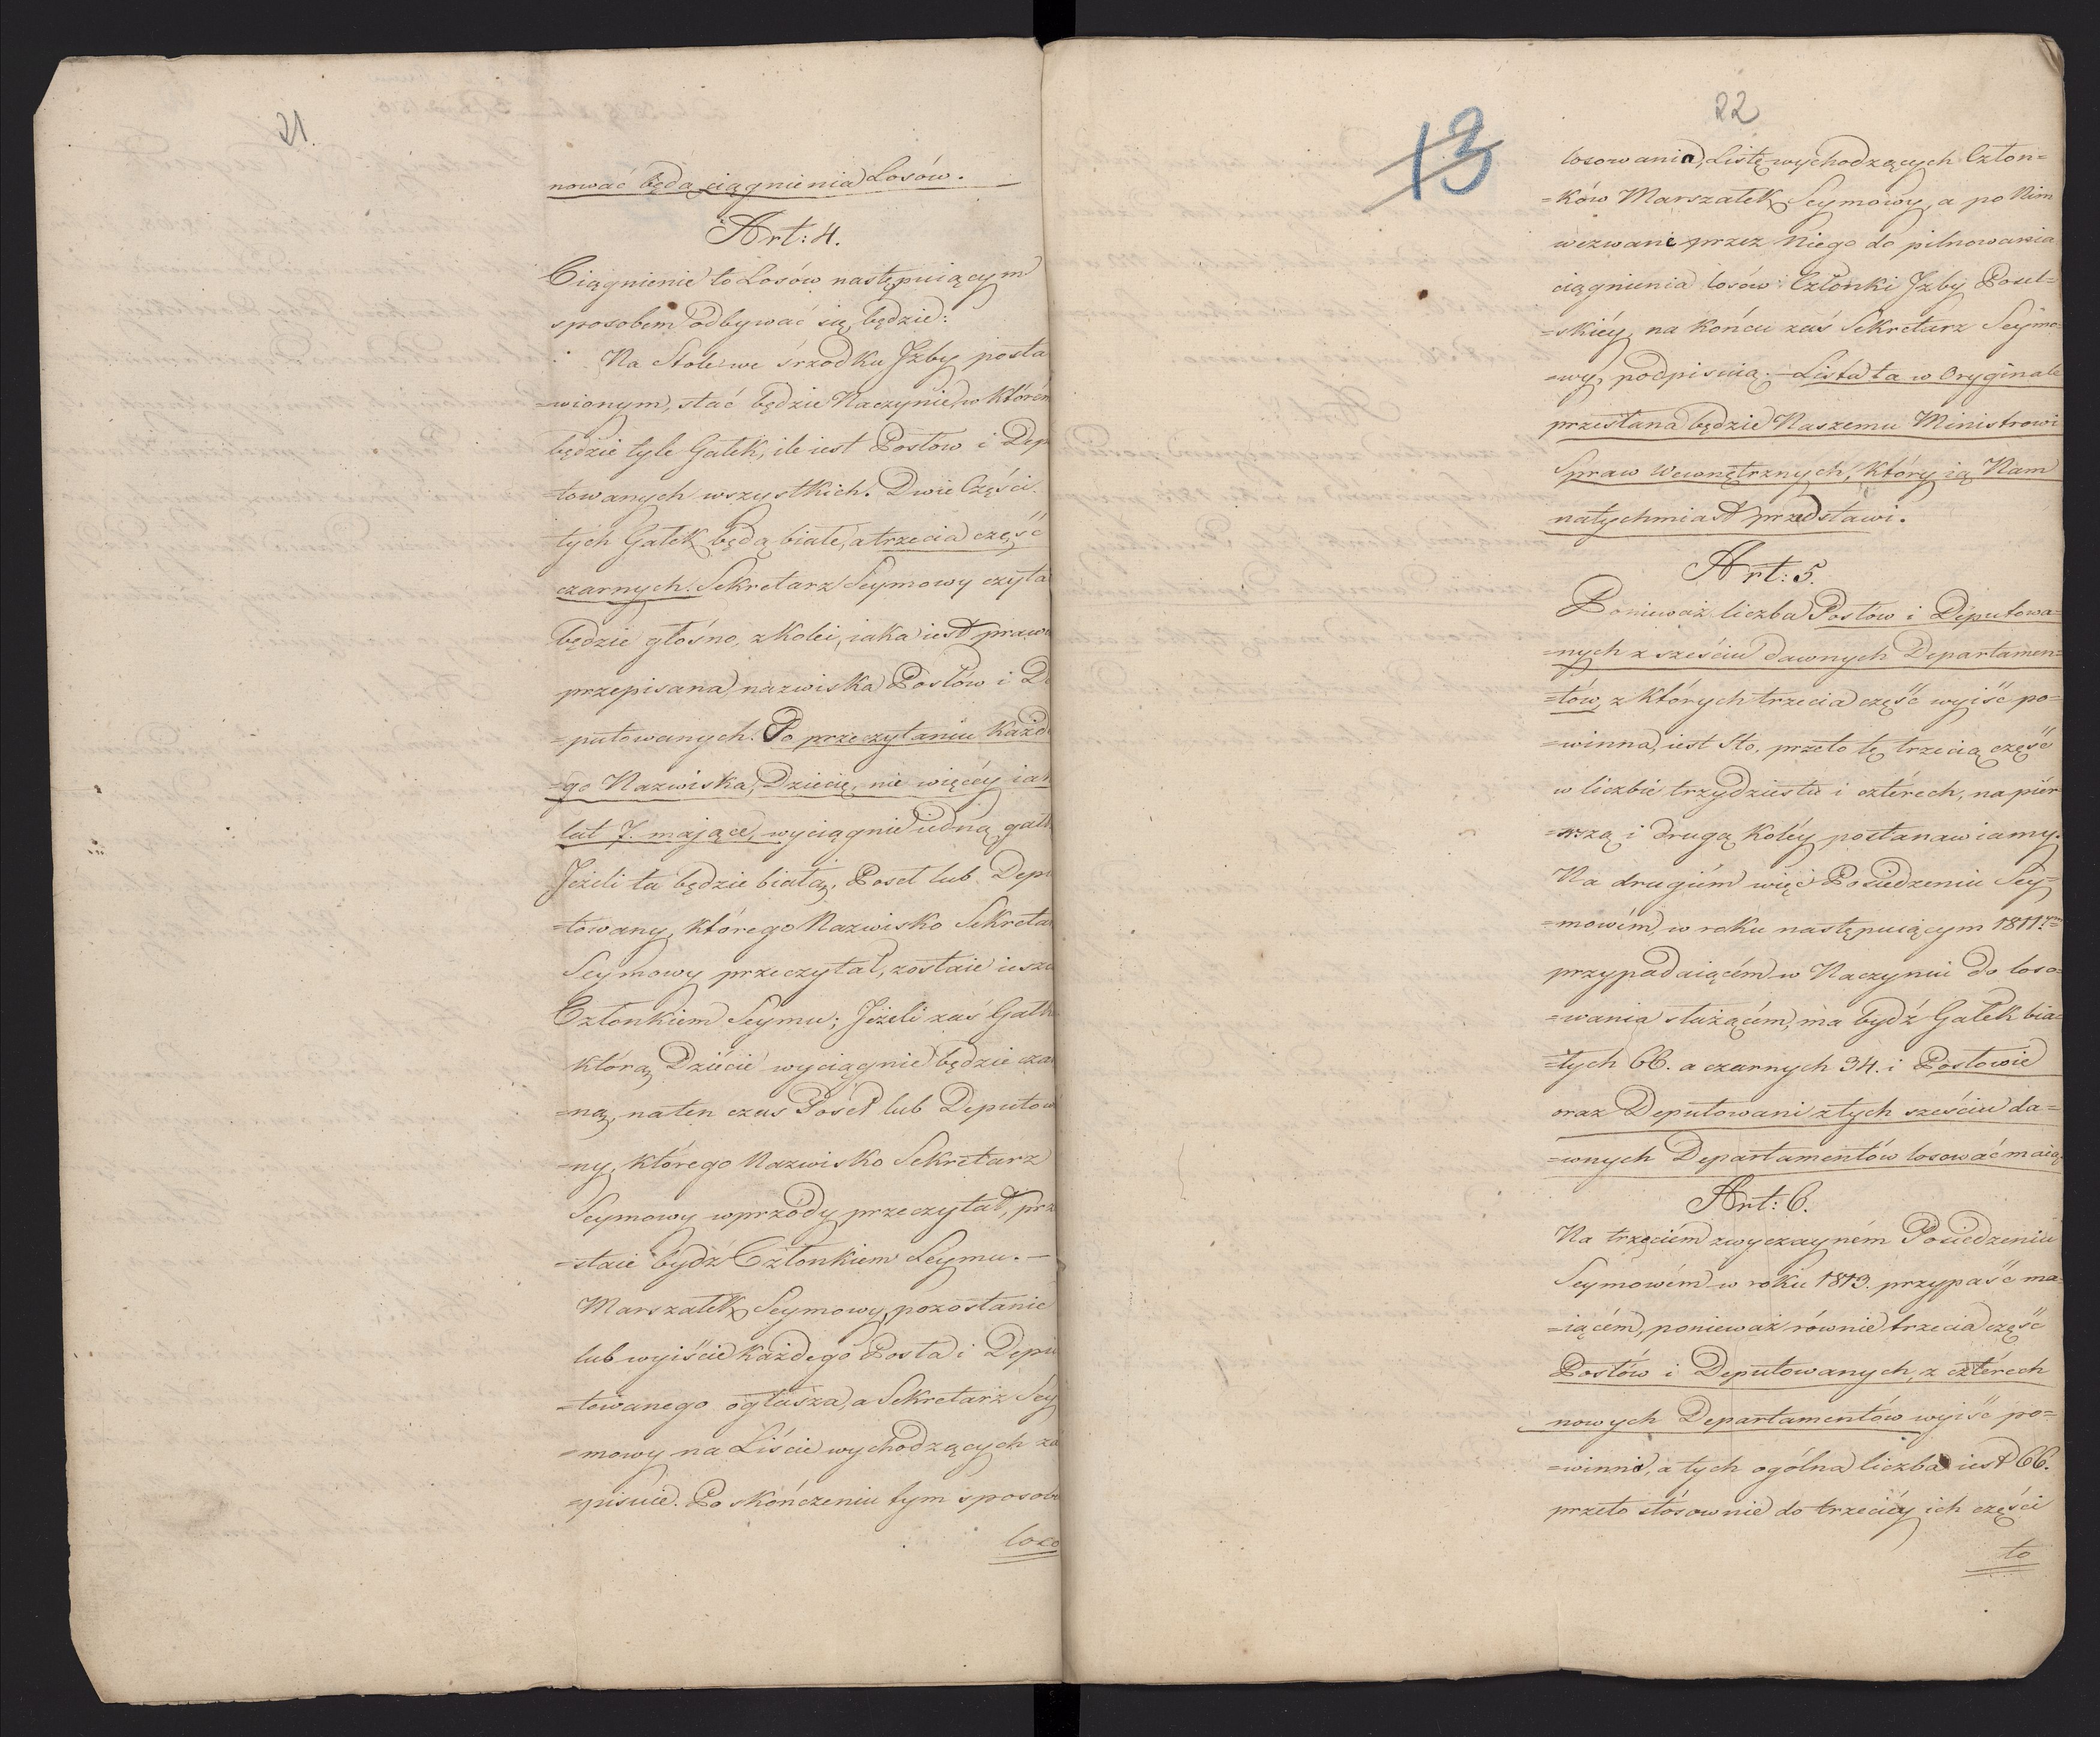 21.
nować będą ciągnienia Losów.
Art: 4.
Ciągnienie to Losów następuiącym
sposobem odbywać się będzie:
Na Stole we srzodku Jzby posta
=wionym, stać będzie Naczynie, w którém
będzie tyle Gałek, ile iest Posłow i Dep
=towanych wszystkich. Dwie Części
tych Gałek będą białe, a trzecia część
czarnych. Sekretarz Seymowy czyta
będzie głośno, z kolei, iaka iest praw
przepisana nazwiska Posłów i De
=putowanych. Po przeczytaniu każd
=go Nazwiska, Dziecię, nie więcéy iak
lat 7. maiące, wyciągnie iedną gałk
Jeżeli ta będzie białą, Poseł lub Depu
=towany, którego Nazwisko Sekretar
Seymowy przeczytał, zostaie ieszcz
Członkiem Seymu; Jeżeli zaś Gałk
którą Dziécie wyciągnie będzie czar
=ną, naten czas Poseł lub Deputow
=ny, którego Nazwisko Sekretarz
Seymowy wprzódy przeczytał, prz
=staie bydź Członkiem Seymu. —
Marszałek Seymowy, pozostanie
lub wyiście każdego Posła i Depu
=towanego ogłasza, a Sekretarz Sey
=mowy na Liście wychodzących za
=pisuie. Po skończeniu tym sposobe
loso
22
13
losowania, Listę wychodzących Człon=
=ków Marszałek Seymowy, a po Nim
wezwani przez Niego do pilnowania
ciągnienia losów Członki Jzby Posel=
=skiéy, na końcu zaś Sekretarz Seymo=
=wy, podpisuią. — Lista ta w Oryginale
przesłana będzie Naszemu Ministrowi
Spraw Wewnętrznych, który ią Nam
natychmiast przedstawi.
Art: 5.
Ponieważ liczba Posłów i Deputowa=
=nych z sześciu dawnych Departamen=
=tów, z których trzecia część wyiść po=
=winna, iest Sto. przeto tę trzecią część
w liczbie trzydziestu i czterech, na pier
=wszą i drugą koléy postanawiamy.
Na drugiém więc Posiedzeniu Sey=
=mowém, w roku następuiącym 1811.
przypadaiącém w Naczyniu do loso=
=wania służącém, ma bydź Gałek bia=
=łych 66. a czarnych 34. i Posłowie
oraz Deputowani z tych sześciu da=
=wnych Departamentów losować maią.
Art: 6.
Na trzeciém zwyczayném Posiedzeniu
Seymowém w roku 1813. przypaść ma=
=iącém, ponieważ równie trzecia część
Posłów i Deputowanych, z czterech
nowych Departamentów wyiść po=
=winni, a tych ogólna liczba iest 66.
przeto stósownie do trzeciéy ich części
to